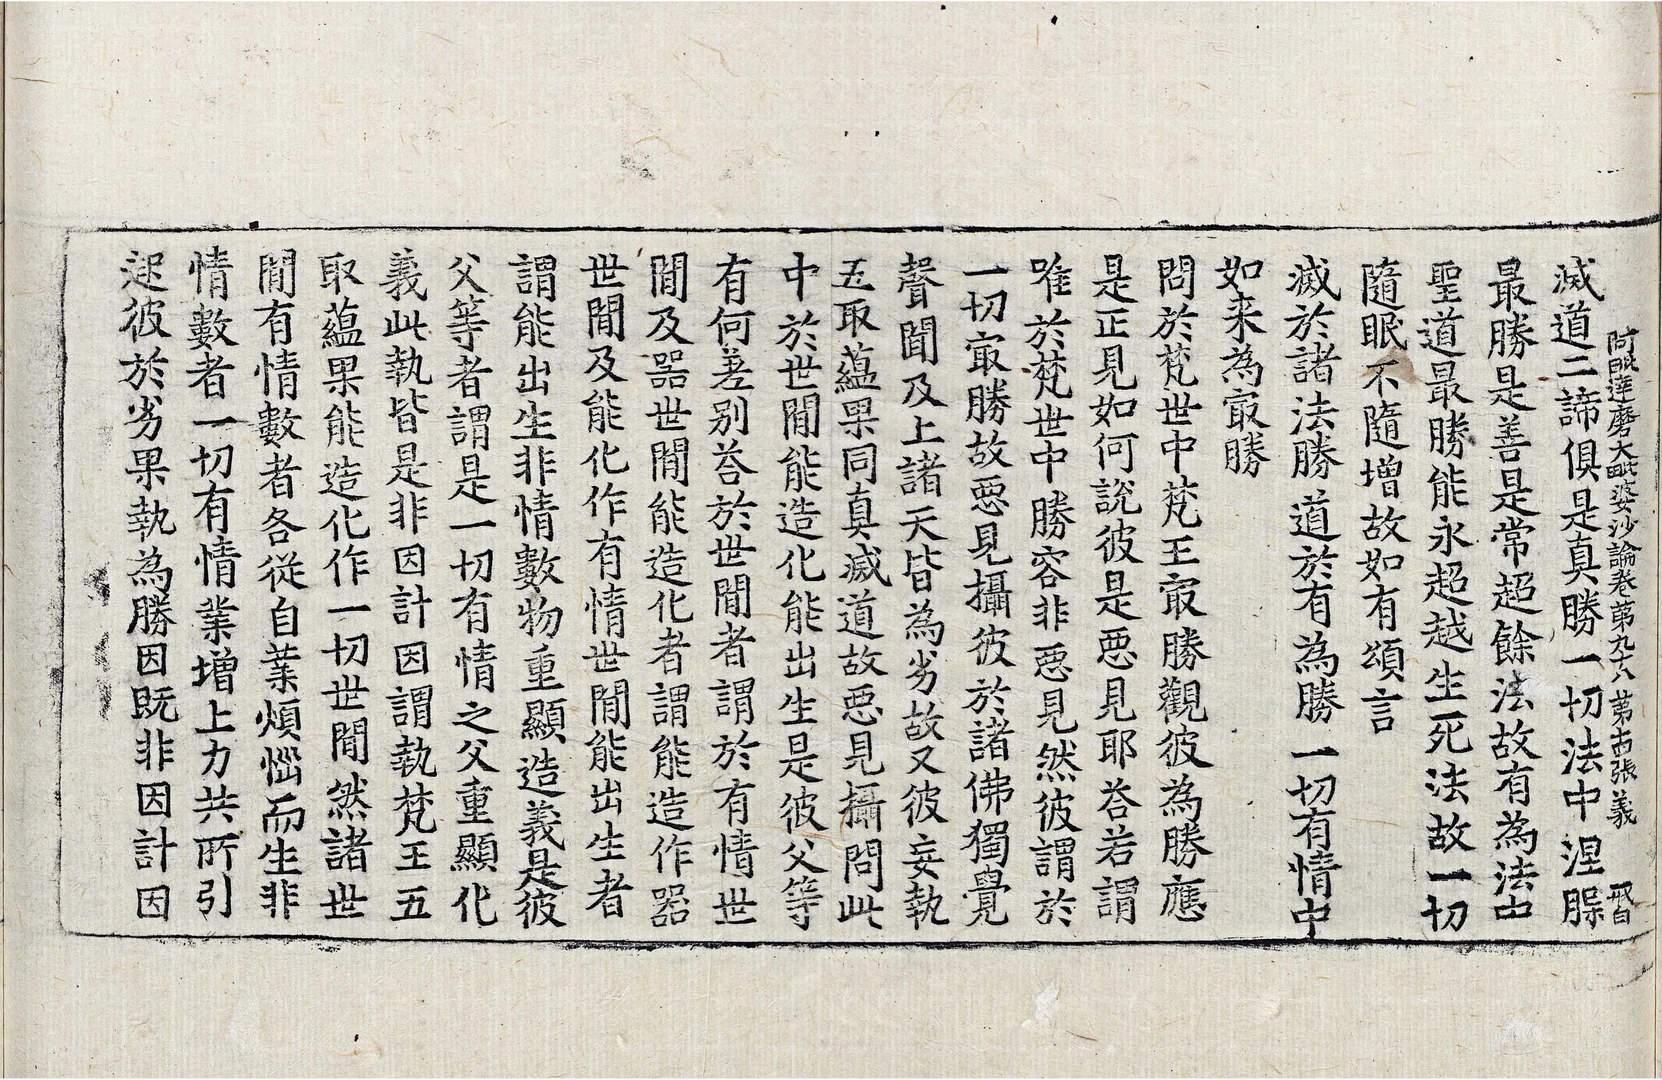 阿毗達磨大毗婆沙論卷第九十八 第十四張 義
滅道二諦俱是真勝一切法中涅槃
最勝是善是常超餘法故有為法中
聖道最勝能永超越生死法故一切
隨眠不隨增故如有頌言
滅於諸法勝 道於有為勝 一切有情中
如来為㝡勝
問於梵世中梵王㝡勝觀彼為勝應
是正見如何說彼是惡見耶荅若謂
唯於梵世中勝容非惡見然彼謂於
一切㝡勝故惡見攝彼於諸佛獨覺
聲聞及上諸天皆為劣故又彼妄執
五取蘊果同真滅道故惡見攝問此
中於世間能造化能出生是彼父等
有何差別荅於世間者謂於有情世
間及器世間能造化者謂能造作器
世間及能化作有情世間能出生者
謂能出生非情數物重顯造義是彼
父等者謂是一切有情之父重顯化
義此執皆是非因計因謂執梵王五
取蘊果能造化作一切世間然諸世
間有情數者各從自業煩惱而生非
情數者一切有情業增上力共所引
起彼於劣果執為勝因既非因計因